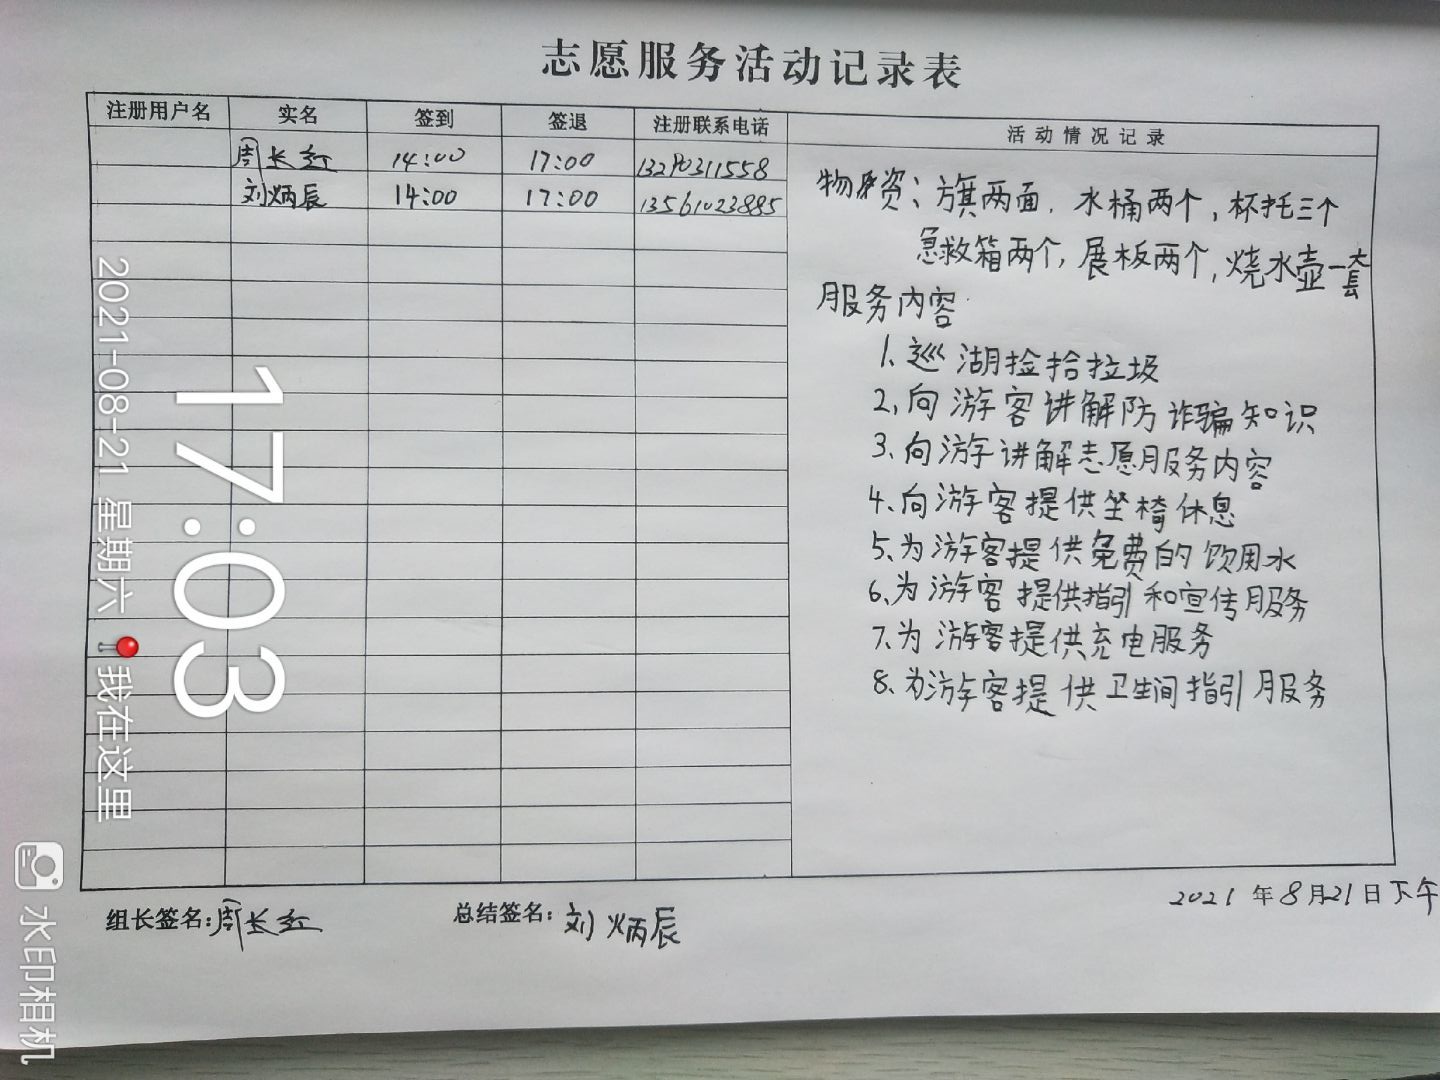 志愿服务活动记录表
注册用户名 实名 签到 签退 注册联系电话 活动情况记录
周长红 14:00 17:00 13290311558
刘炳辰 14:00 17:00 13561023885
物资：旗两面，水桶两个，杯托三个
急救箱两个，展板两个，烧水壶一套
服务内容
1、巡湖捡拾垃圾
2、向游客讲解防诈骗知识
3、向游字讲解志愿服务内容
4、向游客提供坐椅休息
5、为游客提供免费的饮用水
6、为游客提供指引和宣传服务
7、为游客提供充电服务
8、为游客提供卫生间指引服务
2021年8月21日下午
组长签名：周长红 总结签名：刘炳辰
17:03
2021-08-21 星期六 我在这里
水印相机